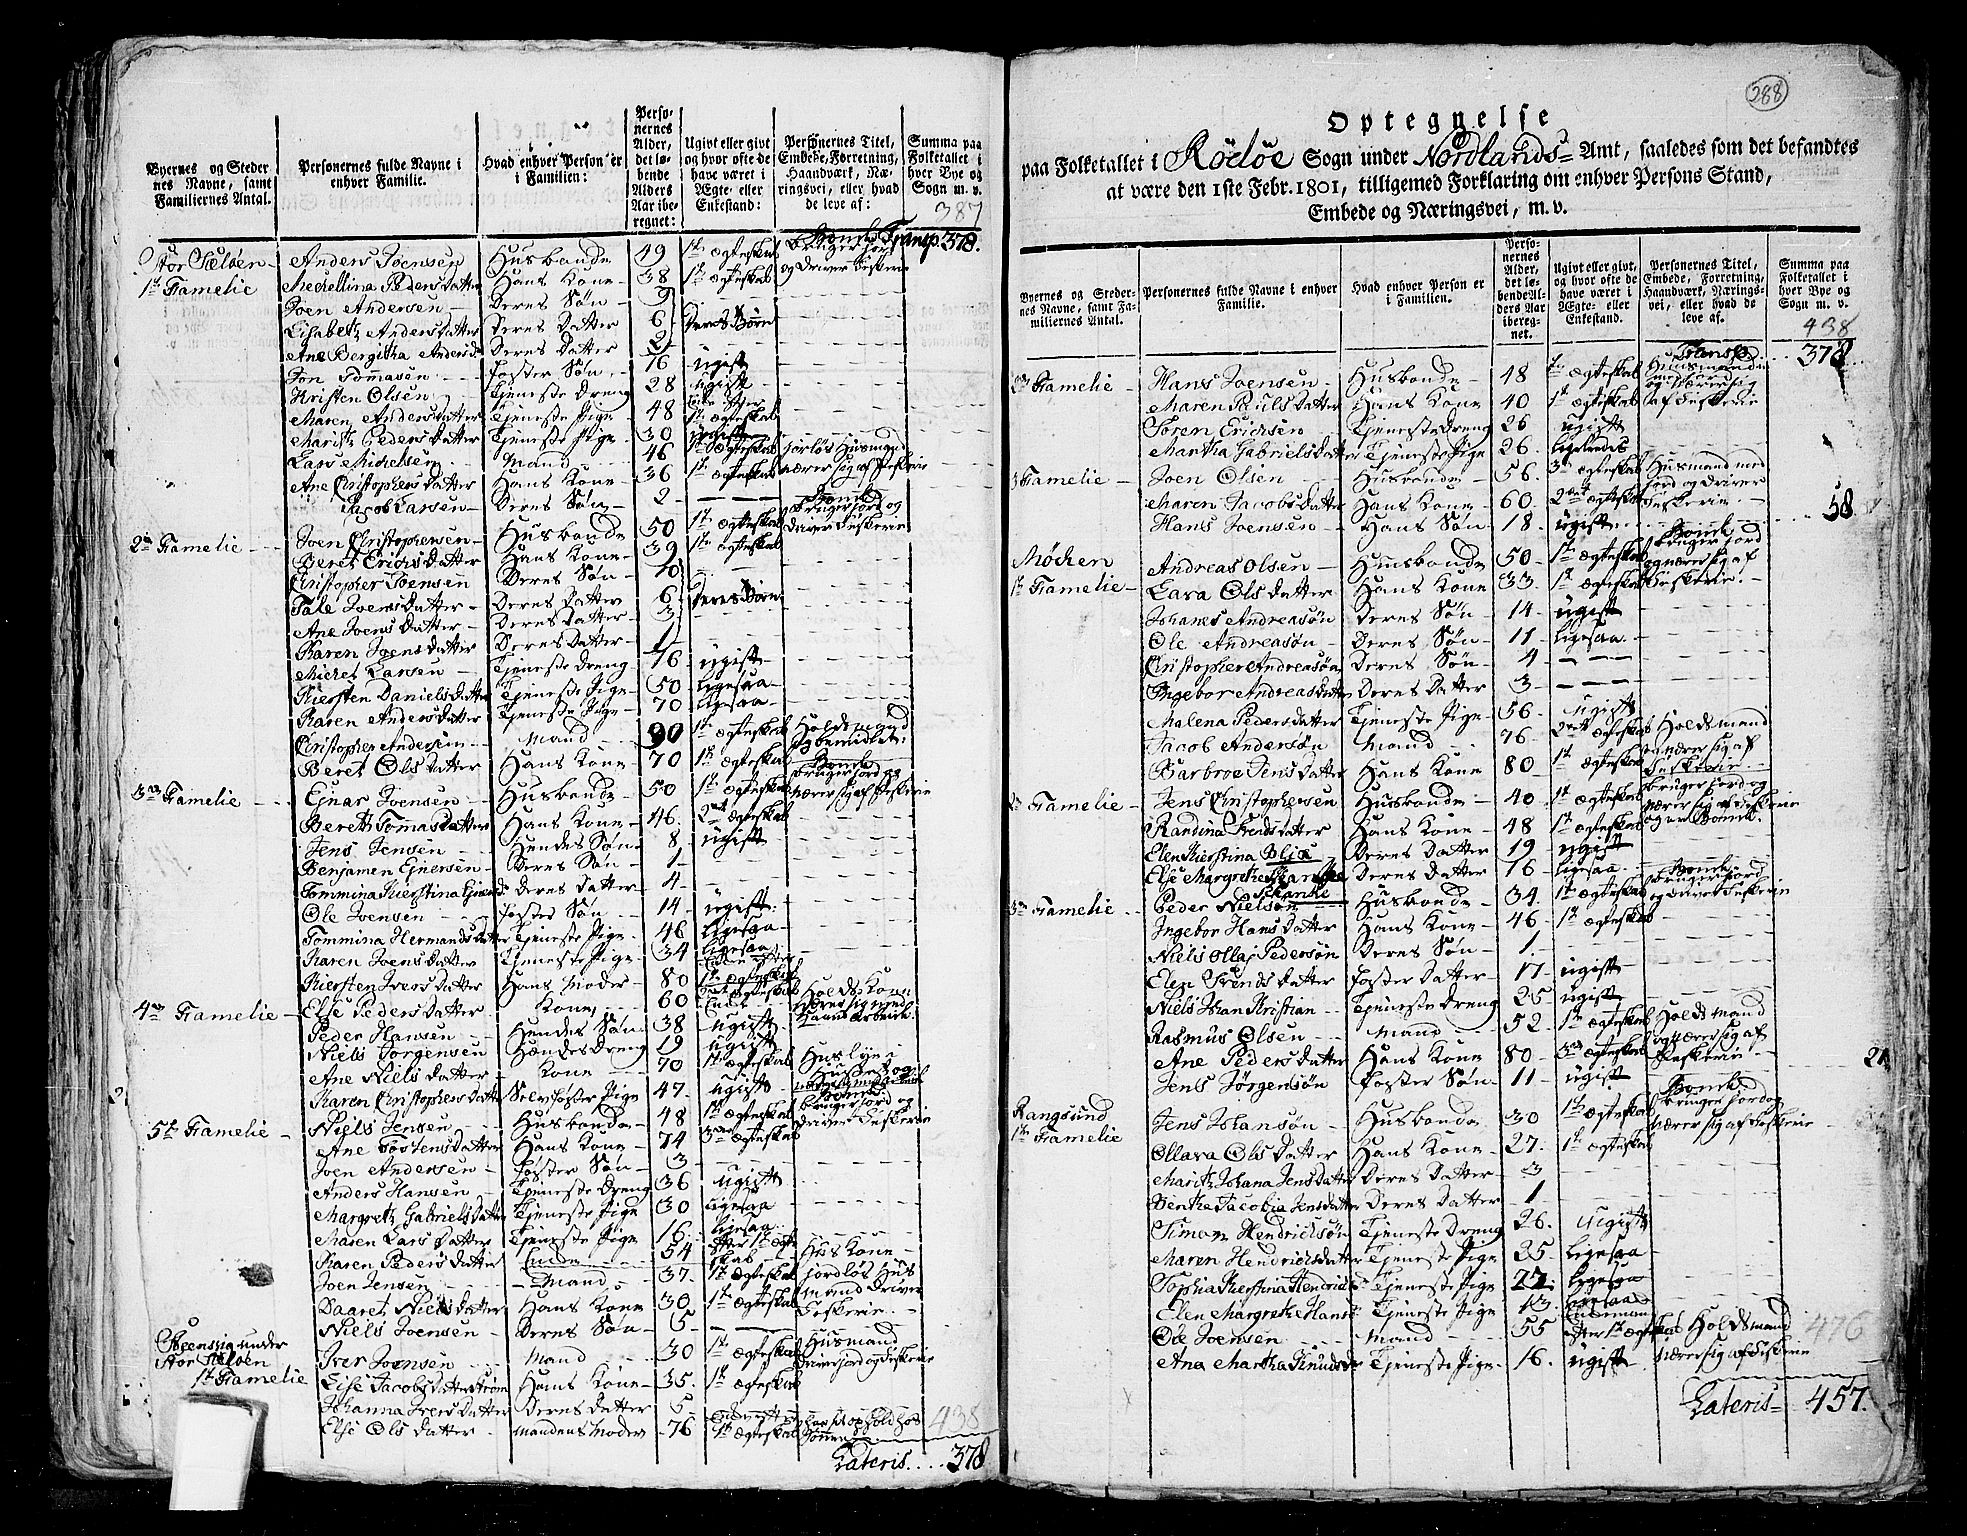 Byernes og Steder nes Navne, samt Familiernes Antal.
Personernes fulde Navne i enhver Familie.
Hvad enhver Person er i Familien:
Perso- nernes Alder, det lø- bende Alders Aar ibe- regnet:
Ugivt eller givt og hvor ofte de have været i Ægte- eller Enkestand:
Personernes Titel, Embede, Forretning, Haandværk, Næ- ringsvei, eller hvad de leve af:
Summa paa Folketallet i hver Bye og Sogn m. v.
387
Transp 378.
Stor Selöen Anders Joensen Husbonde 49 1te ægteskab
1te Famelie Mechellina Peders Datter Hans Kone 38 1te ægteskab og Driver Fiskerie
Joen Andersen Deres Søn 9
Lisabeth Anders Datter Deres Datter 6 Deres Børn
Ane Bergitha Anders Deres Datter 2
Jon Tommasen Foster Søn 16 ugift
Kristen Olsen Tjeneste Dreng 28 ugift
Maren Anders Datter Tjeneste Pige 48
Maritz Peders Datter Tjeneste Pige 30 ugift
Lars Michelsen Mand 46 1te ægteskab jorløs Husmand
Ane Christophers Datter Hans Kone 36 1te ægteskab nærer sig af Fiskerie
Jacob Larsen Deres Søn 2
2de Famelie Joen Christophersen Husbonde 50 1te ægteskab Bruger jord og Driver Fiskerie
Beret Erichs Datter Hans Kone 39 1te ægteskab
Christopher Joensen Deres Søn 10
Tale Joens Datter Deres Datter 6 Deres Børn
Ane Joens Datter Deres Datter 3
Karen Joens Datter Deres Datter 1
Michel Larsen Tjeneste Dreng 16 ugift
Kiersten Daniels Datter Tjeneste Pige 50 Ligesaa
Karen Anders Datter Tjeneste Pige 70 Ligesaa
Christopher Andersen Mand 90 1te ægteskab Holdsmand
Beret Ols Datter Hans Kone 70 1te ægteskab
3die Famelie Ejnar Joensen Husbonde 50 1te ægteskab Bruger jord og nærer sig af Fiskerie
Bereth Tommas Datter Hans Kone 46. 2det ægteskab
Jens Jensen Hendes Søn 8 ugift
Benjamen Ejnersen Deres Søn 1
Tommina Kierstina Deres Datter 4
Ole Joensen Foster Søn 14 ugift
Tommina Hermands Datter Tjeneste Pige 46 Ligesaa
Karen Joens Datter Tjeneste Pige 34 Ligesaa
Kiersten Ivers Datter Hans Moder 80
4de Famelie Else Peders Datter Kone 60 Holds Kone Nærer sig med Haand Arbeide
Peder Hansen Hendes Søn 38 ugift
Niels Jørgensen Hendes Dreng 19 ugift
Ane Niels Datter Kone 70 1te ægteskab
Karen Christophers Datter Pige 47 ugift
5te Famelie Niels Jensen Husbonde 48 1te ægteskab Bruger jord og Driver Fiskerie
Ane Torstens Datter Hans Kone 74 3die ægteskab
Joen Andersen Foster Søn 3
Anders Hansen Tjeneste Dreng 36 ugift
Margreth Gabriels Datter Tjeneste Pige 30 Ligesaa
Maren Lars Datter Tjeneste Pige 16 Ligesaa
Karen Peders Datter 54 Hus Kone
Joen Jensen Mand 37. 1te ægteskab jordløs Husmand Driver Fiskerie
Daaret Niels Datter Hans Kone 30 1te ægteskab
Niels Joensen Deres Søn 5
Steensvig under Stor Selöen
1te Famelie Iver Joensen Mand 30 1te ægteskab Husmand Driver jord og Fiskerie
Else Jacobs Datter Hans Kone 35. 1te ægteskab
Johanna Ivers Datter Deres Datter 5
Else Ols Datter Mandens Moder 76
438
Lateris.... 378
288
Optegnelse
paa Folketallet i Rödöe Sogn under Nordlands Amt, saaledes som det befandtes
at være den 1ste Febr. 1801, tilligemed Forklaring om enhver Persons Stand,
Embede og Næringsvei, m. v.
Byernes og Steder- nes Navne, samt Fa- miliernes Antal.
Personernes fulde Navne i enhver Familie.
Hvad enhver Person er i Familien.
Perso- nernes Alder, det lø- bende Al- ders Aar ibereg- net.
Ugivt eller givt, og hvor ofte de have været i Ægte- eller Enkestand.
Personernes Titel, Embede, Forretning, Haandværk, Nærings- vei, eller hvad de leve af.
Summa paa Folketallet i hver Bye og Sogn m. v.
438
Transp 378
2den Famelie Hans Joensen Husbonde 48 1te ægteskab Husmand og nærer sig af Fiskerie
Maren Pouls Datter Hans Kone 40 1te ægteskab
Søren Erichsen Tjeneste Dreng 26 ugift
Martha Gabriels Datter Tjeneste Pige 26.
3 Famelie Joen Olsen Husbonde 56. 3die ægteskab Husmand med jord og Driver Fiskerie
Maren Jacobs Datter Hans Kone 60. 2det ægteskab
Hans Joensen Hans Søn 18. ugift 58
Möchen Andreas Olsen Husbonde 50 1te ægteskab Bruger jord og nærer sig af Fiskerie
1te Famelie Lara Ols Datter Hans Kone 33 1te ægteskab
Johanes Andreasøn Deres Søn 14 ugift
Ole Andreasøn Deres Søn 11 Ligesaa
Christopher Andreasøn Deres Søn 4
Ingebor Andreas Datter Deres Datter 3
Malena Peders Datter Tjeneste Pige 56 ugift
Jacob Andersøn Mand 76. 2det ægteskab Holdsmand nærer sig af Fiskerie
Barbroe Jens Datter Hans Kone 80 1te ægteskab
2 Famelie Jens Christophersen Husbonde 40 1te ægteskab Bruger jord og nærer sig af Fiskerie
Randina Svends Datter Hans Kone 48 1te ægteskab
Elen Kierstina Deres Datter 19 ugift
Else Margrethe Deres Datter 16 Ligesaa
3die Famelie Peder Nielsøn Schancke Husbonde 34 1te ægteskab Bruger jord
Ingebor Hans Datter Hans Kone 46 1te ægteskab
Niels Ollaj Pedersøn Deres Søn 1
Elen Svends Datter Foster Datter 17 ugift
Niels Johan Kristian Tjeneste Dreng 25 ugift
Rasmus Olsen Mand 52 1te ægteskab Holdsmand og nærer sig af Fiskerie
Ane Peders Datter Hans Kone 80 3die ægteskab 21
Jens Jørgensøn Foster Søn 11 ugift
Rangsund Jens Johansøn Husbonde 30 1te ægteskab Bruger jord og nærer sig af Fiskerie
1te Famelie Ollava Ols Datter Hans Kone 27. 1te ægteskab
Maritz Johana Jens Datter Deres Datter 3
Benthe Jacobia Jens Datter Deres Datter 1
Simon Hendrichsøn Tjeneste Dreng 26. ugift
Maren Hendrichs Datter Tjeneste Pige 25 Ligesaa
Sophia Kierstina Hendrichs Tjeneste Pige 22. Ligesaa
Elen Margreth Hans Tjeneste Pige 13 Ligesaa
Ole Joensen Mand 55 Holdsmand nærer sig af Fiskerie
Ana Martha Knuds Tjeneste Pige 16. ugift
476
Lateris 457.